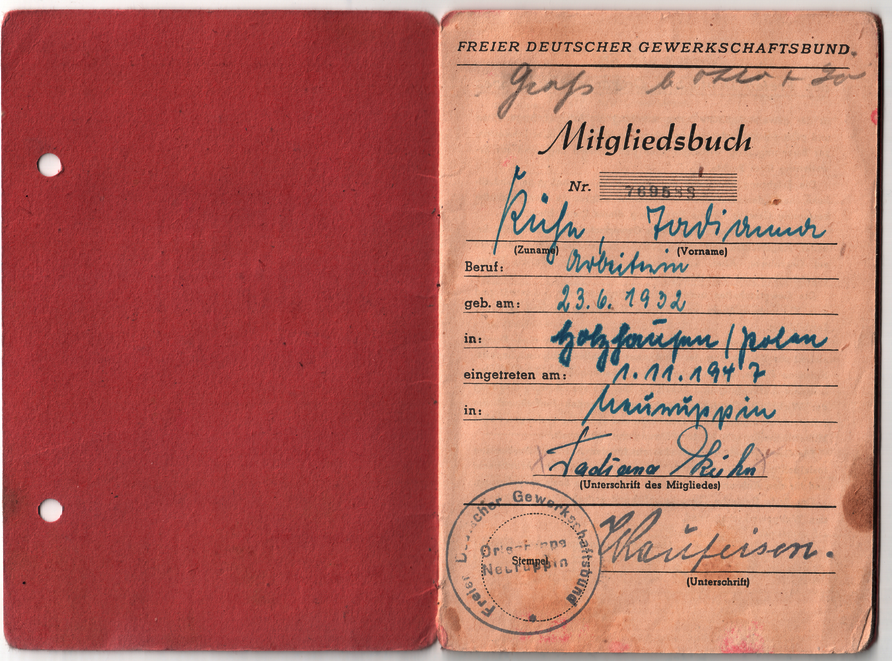 FREIER DEUTSCHER GEWERKSCHAFTSBUND
Mitgliedsbuch
Nr. 769588
Kühn, Tadianna
(Zuname) (Vorname)
Beruf: Arbeiterin
geb. am: 23.6.1932
in: Holzhausen / Polen
eingetreten am: 1.11.1947
in: Neuruppin
Tadiana Kühn
(Unterschrift des Mitgliedes)
Freier Deutscher Gewerkschaftsbund
Ortsgruppe
Neuruppin
Stempel
Haufeisen.
(Unterschrift)